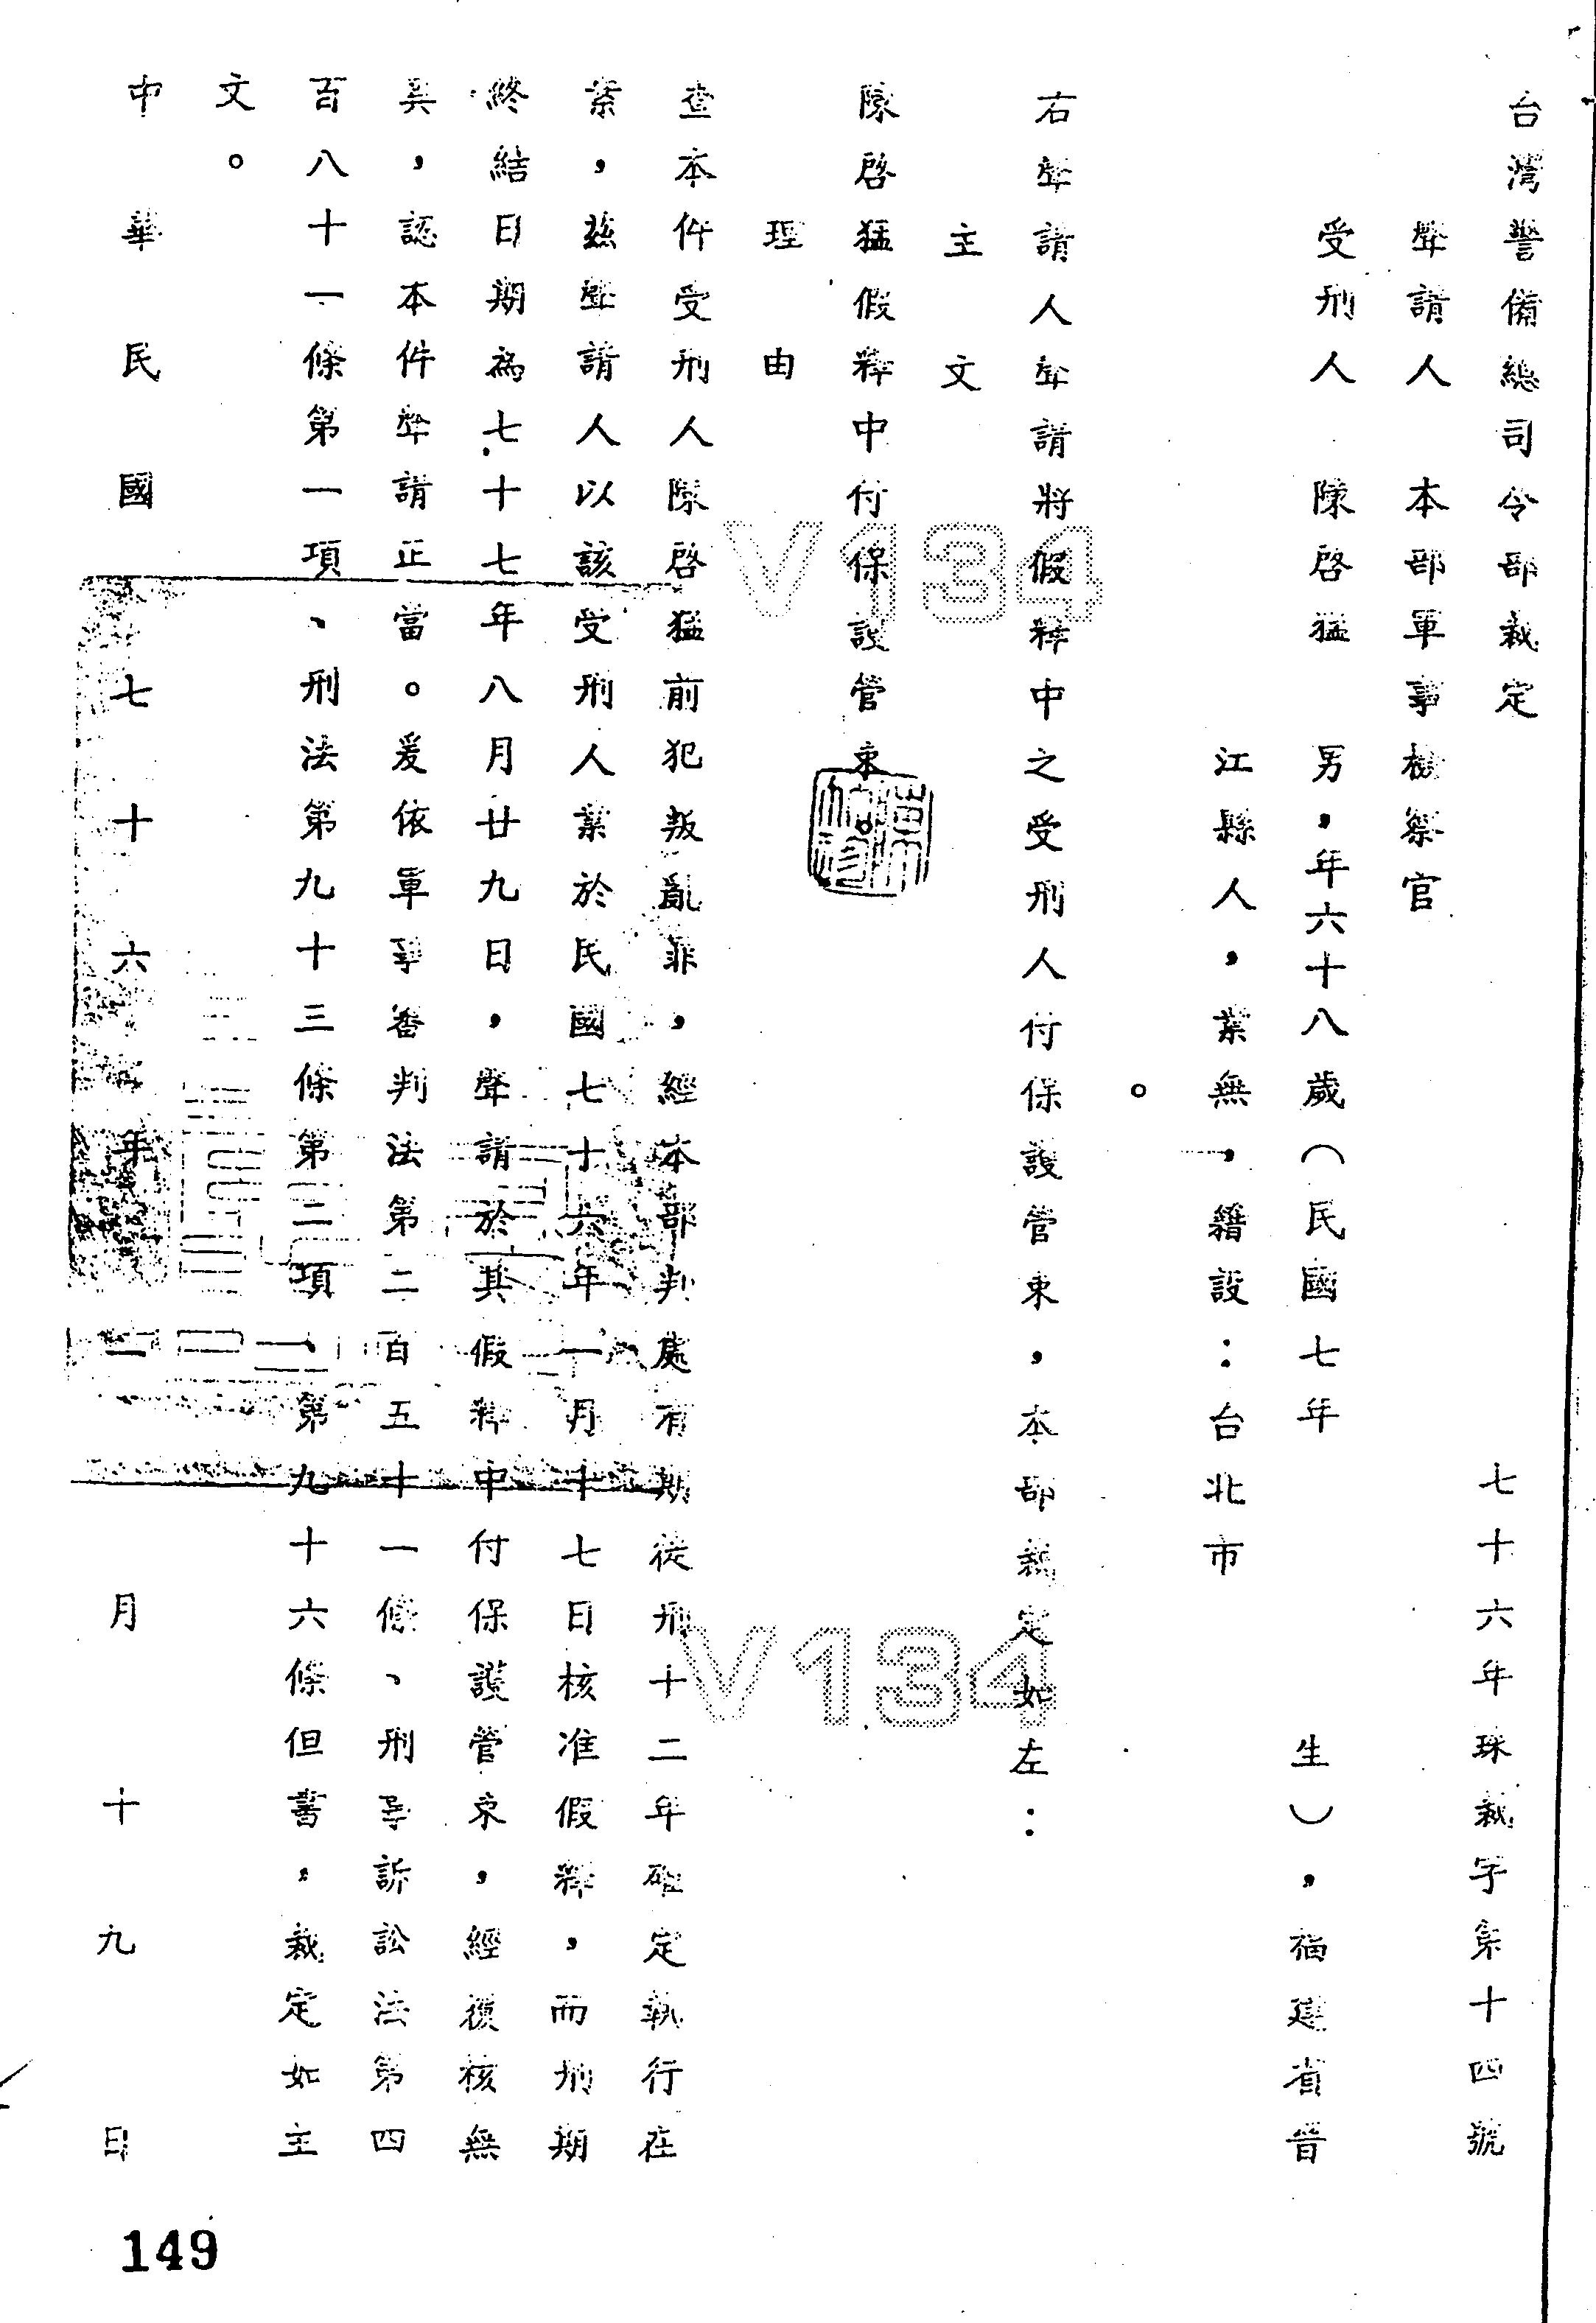 台灣警備總司令部裁定
七十六年珠裁字第十四號
聲請人　本部軍事檢察官
受刑人　陳啓猛　男，年六十八歲（民國七年　生），福建省晉
江縣人，業無，籍設：台北市
。
右聲請人聲請將假釋中之受刑人付保護管束，本部裁定如左：
主文
陳啓猛假釋中付保護管束。
理由
查本件受刑人陳啓猛前犯叛亂罪，經本部判處有期徒刑十二年確定執行在
案，茲聲請人以該受刑人業於民國七十六年一月十七日核准假釋，而刑期
終結日期為七十七年八月廿九日，聲請於其假釋中付保護管束，經復核無
異，認本件聲請正當。爰依軍事審判法第二百五十一條、刑事訴訟法第四
百八十一條第一項、刑法第九十三條第二項、第九十六條但書，裁定如主
文。
中華民國七十六年一月十九日
V134
V134
149